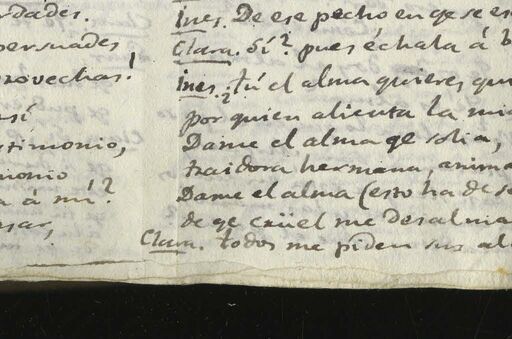 rdades.
persuades
rovechas!
así
stimonio,
monio
a á mí?
nsar,
Ines. De ese pecho en qe se es
Clara. Sí? pues échala á b
Ines. tú el alma quieres, que
por quien alienta la mia
Dame el alma qe solia,
traidora hermana, anima
Dame el alma (esto ha de se
de qe crüel me desalma
Clara. todos me piden sus al